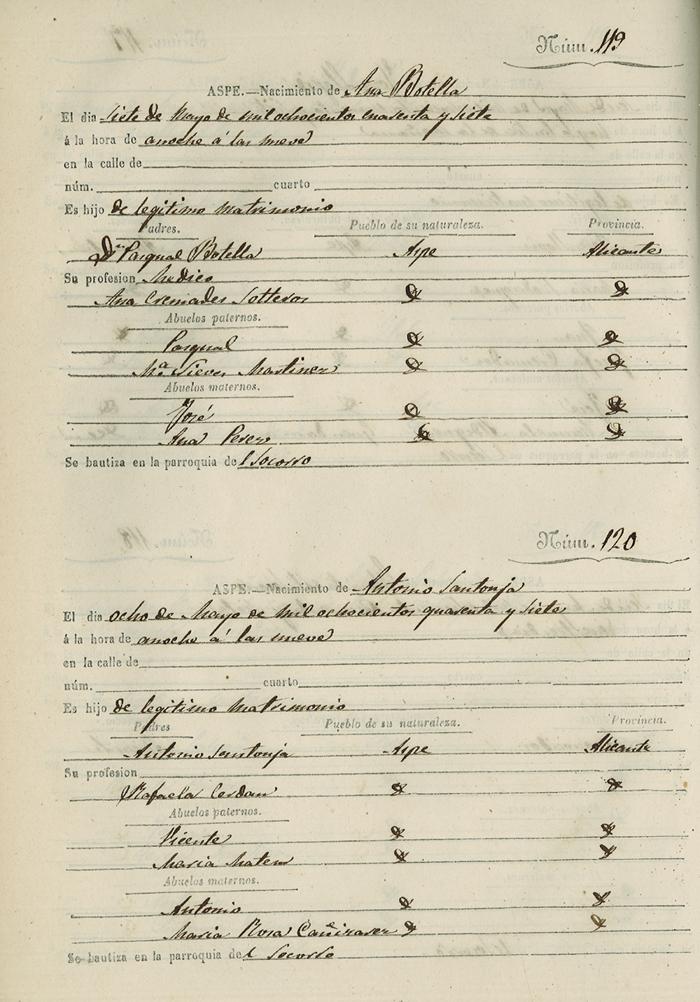 Núm. 119
ASPE.—Nacimiento de Ana Botella
El dia siete de Mayo de mil ochocientos cuarenta y siete
á la hora de anoche á las nueve
en la calle de
núm. cuarto
Es hijo de legitimo matrimonio
Padres. Pueblo de su naturaleza. Provincia.
Dn Pasqual Botella Aspe Alicante
Su profesion Medico
Ana Cremades Sotteras & &
Abuelos paternos.
Pasqual & &
Ma. Nieves Martinez & &
Abuelos maternos.
José & &
Ana Perez & &
Se bautiza en la parroquia del Socorro
Núm. 120
ASPE.—Nacimiento de Antonio Santonja
El dia ocho de Mayo de mil ochocientos quarenta y siete
á la hora de anoche á las nueve
en la calle de
núm. cuarto
Es hijo de legitimo matrimonio
Padres Pueblo de su naturaleza. Provincia.
Antonio Santonja Aspe Alicante
Su profesion
Rafaela Cerdan & &
Abuelos paternos.
Vicente & &
Maria Mateu & &
Abuelos maternos.
Antonio & &
Maria Rosa Cañizares & &
Se bautiza en la parroquia del Socorro